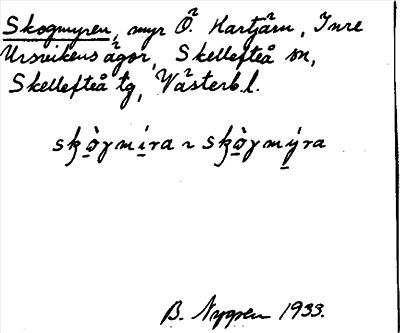 Skogmyren, myr Ö. Hartjärn, Inre
Ursvikens ägor, Skellefteå sn,
Skellefteå tg, Västerb. l.
skò̠γmí̠ra ~ skò̠γmý̠ra
B. Nygren 1933.